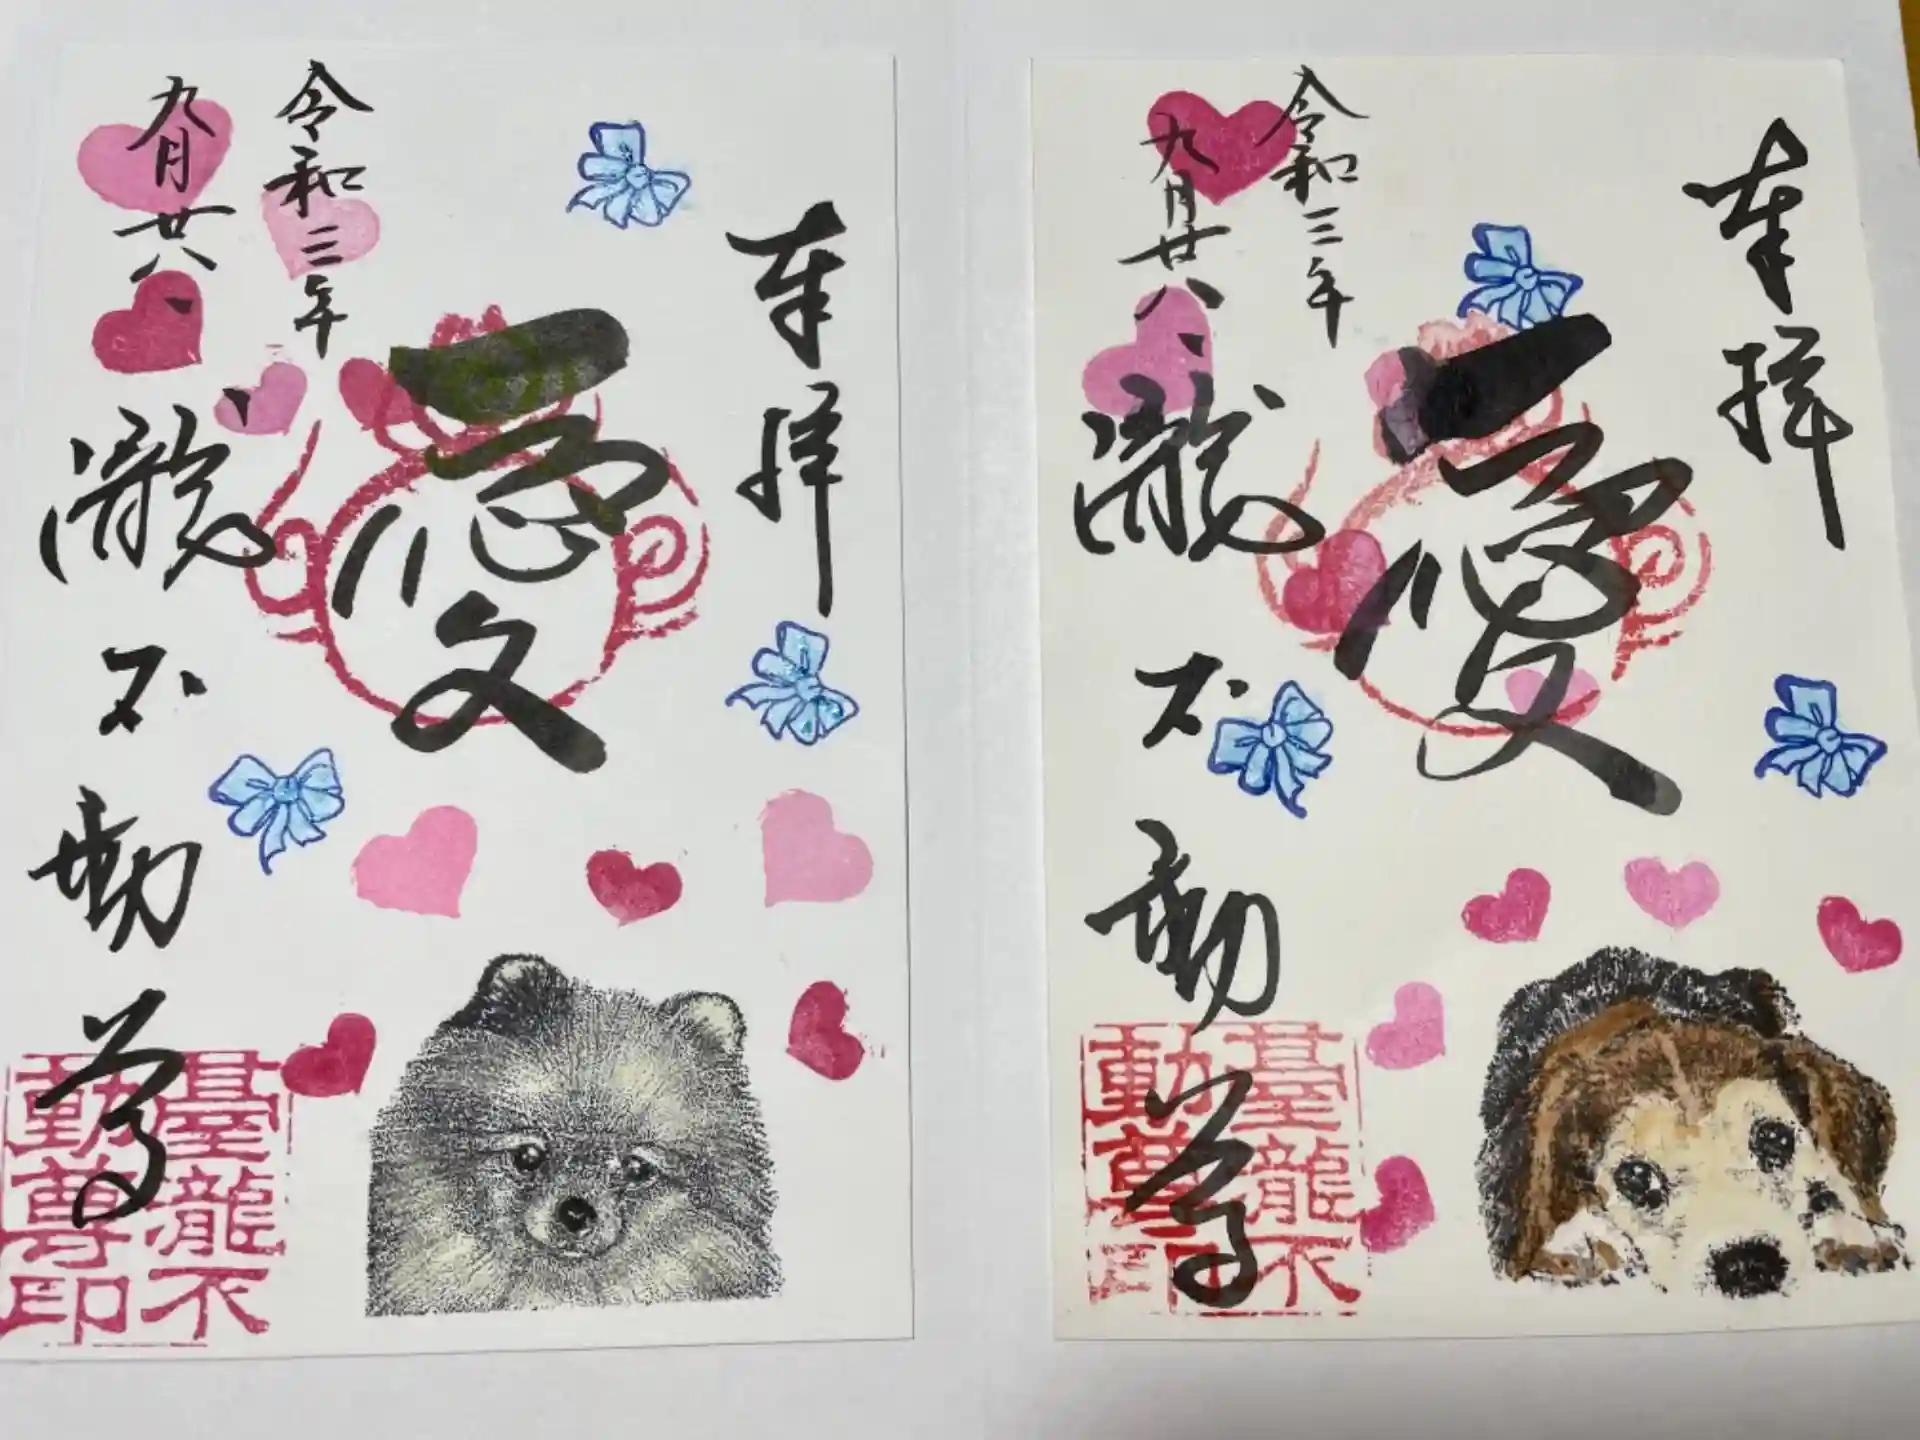 奉拝
愛
令和三年
九月廿八、
瀧不動尊
臺瀧不
動尊印
奉拝
愛
令和三年
九月廿八、
瀧不動尊
臺瀧不
動尊印